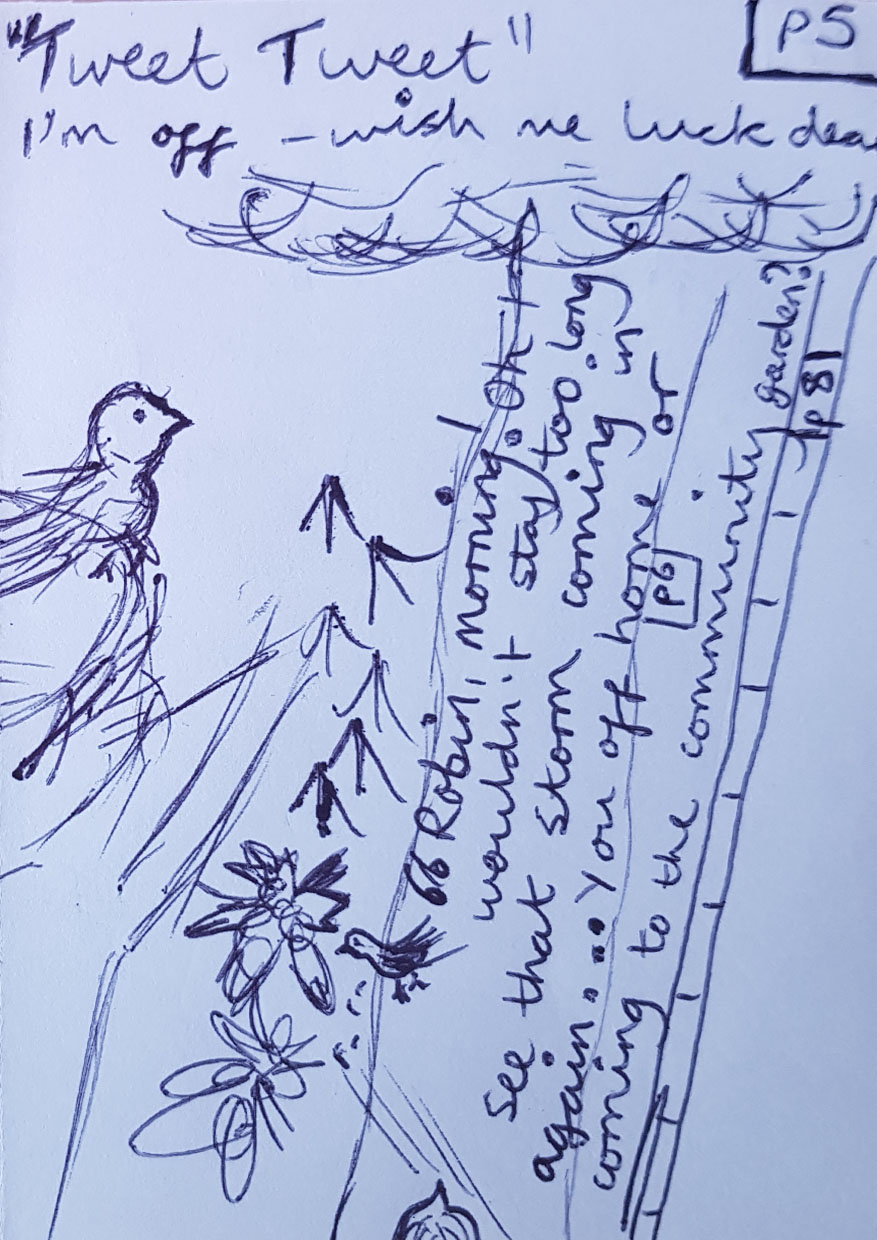 "Tweet Tweet"
P5
I'm off - wish me luck dea
66 Robin, morning! Oh I
wouldn't stay too long
See that storm coming in
again... You off home or
P6
coming to the community garden?
P 81